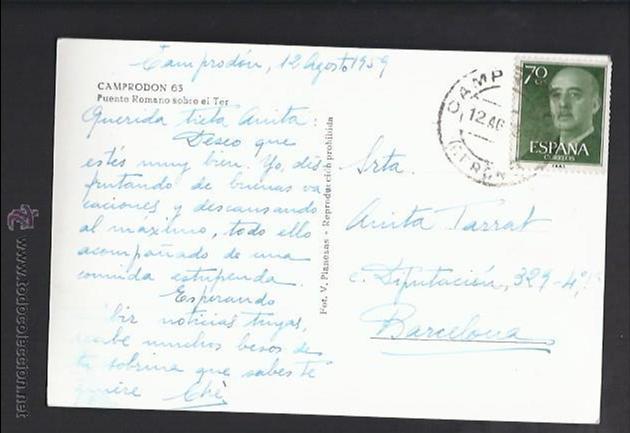 Camprodón, 12 Agosto 1959
CAMPRODON 63
Puente Romano sobre el Ter
Querida tieta Anita:
Deseo que
estés muy bien. Yo, dis
frutando de buenas va
caciones y descansando
al maximo, todo ello
acompañado de una
comida estupenda.
Esperando
ibir noticias tuyas,
recibe muchos besos de
tu sobrina que sabes te
quiere
Fot. V. Planesas - Reproducción prohibida
Srta.
Anita Tarrat
c. Diputación, 329-4º,
Barcelona
CAMP
12 AG
(GERON
70
ESPAÑA
CORREOS
www.todocoleccion.net